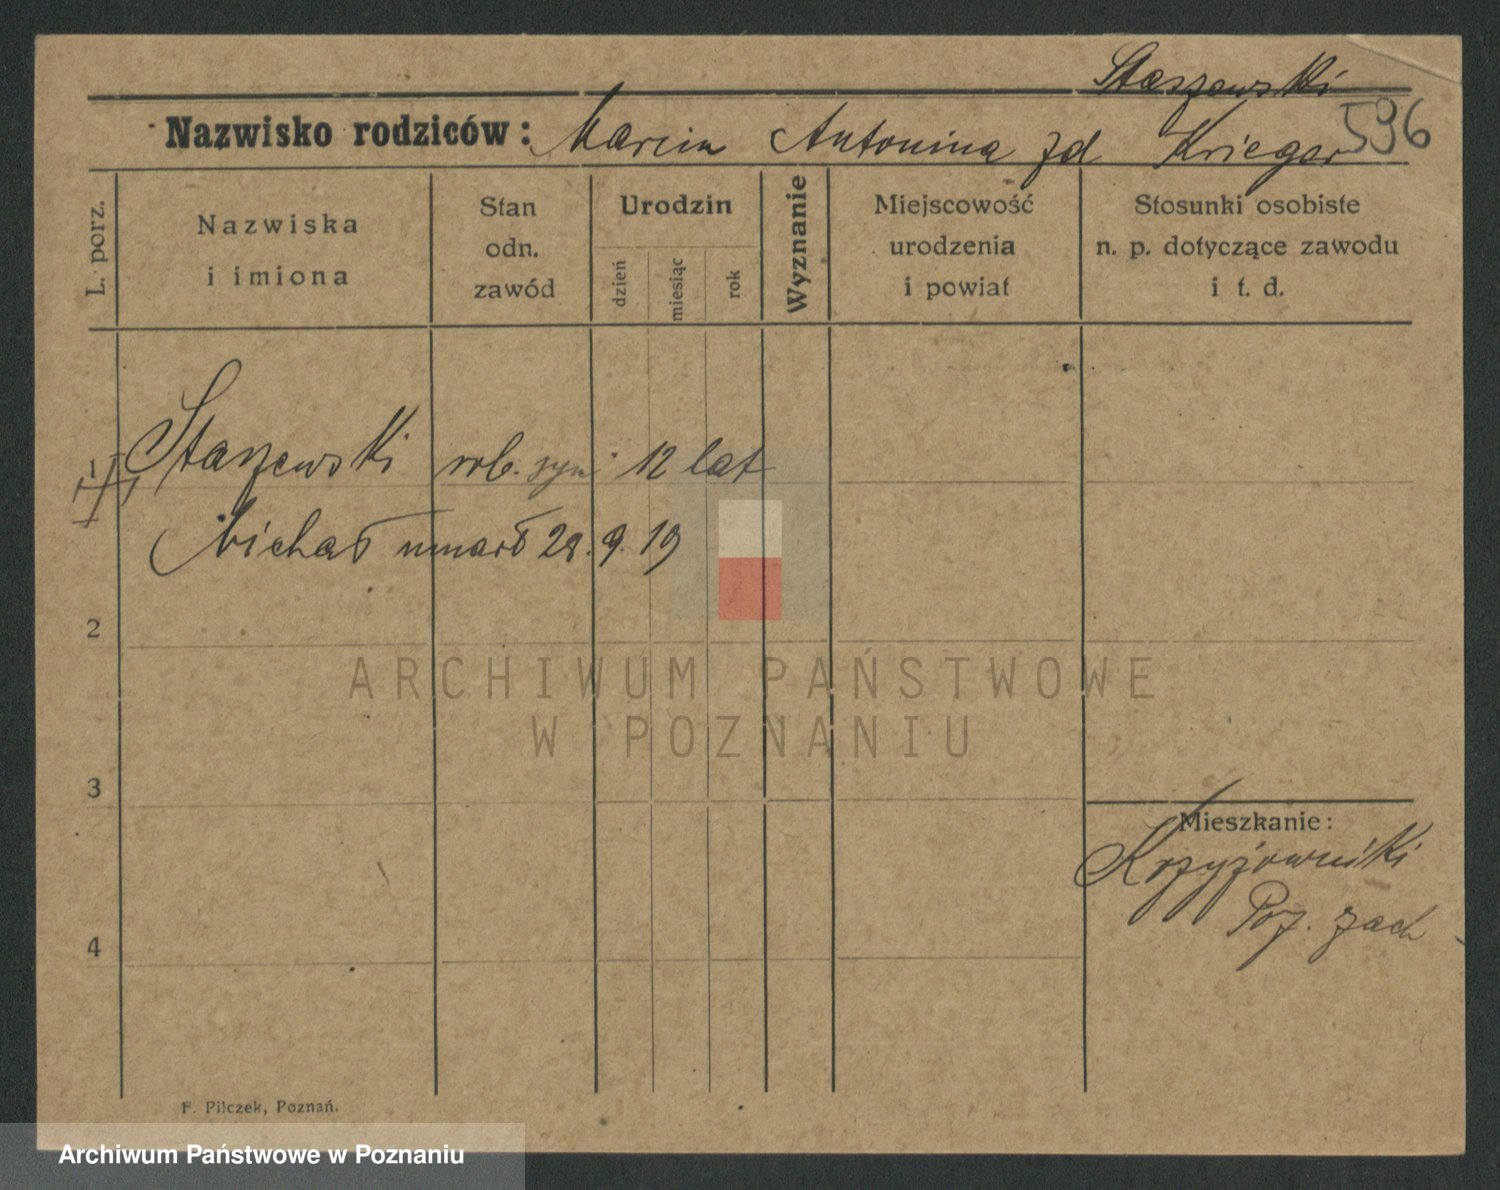 Staszewski
Nazwisko rodziców: Marcin Antonina zd Krieger 596
L. porz.
Nazwiska i imiona
Stan odn. zawód
Urodzin
dzień
miesiąc
rok
Wyznanie
Miejscowość urodzenia i powiat
Stosunki osobiste n. p. dotyczące zawodu i t. d.
1 Staszewski rob. syn 12 lat
Michał umarł 28. 9. 19
2
ARCHIWUM PAŃSTWOWE
W POZNANIU
3
Mieszkanie:
Krzyżowniki
Poz. zach
4
F. Pilczek, Poznań.
Archiwum Państwowe w Poznaniu